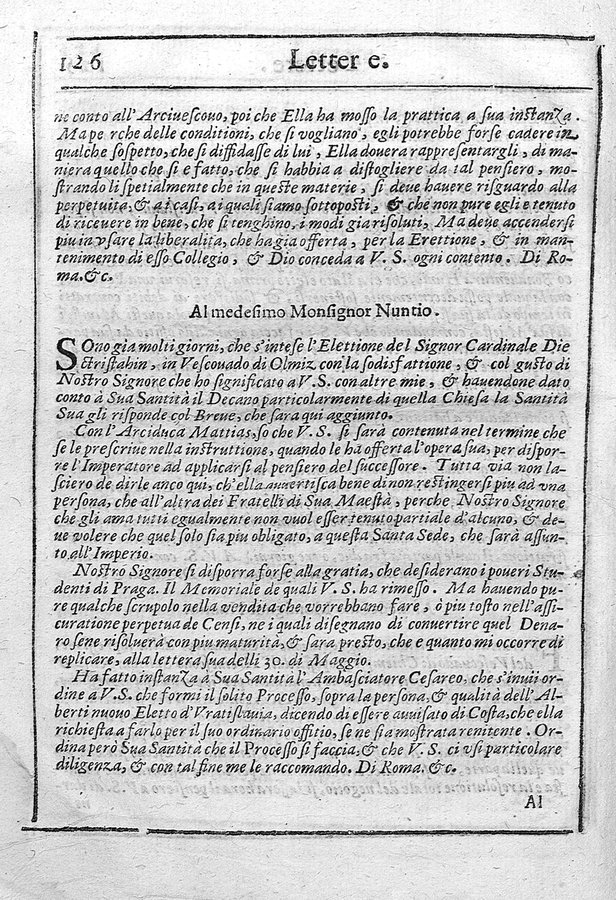 126 Lettere.
ne conto all' Arciuescouo, poi che Ella ha mosso la prattica a sua instanza.
Ma pe rche delle conditioni, che si vogliano, egli potrebbe forse cadere in
qualche sospetto, che si diffidasse di lui, Ella douera rappresentargli, di ma-
niera quello che si e fatto, che si habbia a distogliere da tal pensiero, mo-
strando li spetialmente che in queste materie, si deue hauere risguardo alla
perpetuita, & a i casi, a i quali siamo sottoposti, & che non pure egli e tenuto
di riceuere in bene, che si tenghino, i modi gia risoluti, Ma deue accendersi
piu in vsare la liberalita, che ha gia offerta, per la Erettione, & in man-
tenimento di esso Collegio, & Dio conceda a V. S. ogni contento. Di Ro-
ma. &c.
Al medesimo Monsignor Nuntio.
SOno gia molti giorni, che s'intese l'Elettione del Signor Cardinale Die
ctristahin, in Vescouado di Olmiz con la sodisfattione, & col gusto di
Nostro Signore che ho significato a V. S. con altre mie, & hauendone dato
conto à Sua Santità il Decano particolarmente di quella Chiesa la Santità
Sua gli risponde col Breue, che sara qui aggiunto.
Con l'Arciduca Mattias, so che V. S. si sarà contenuta nel termine che
se le prescriue nella instruttione, quando le ha offerta l'opera sua, per dispor-
re l'Imperatore ad applicarsi al pensiero del successore. Tutta via non la-
sciero de dirle anco qui, ch'ella auuertisca bene di non restingersi piu ad vna
persona, che all'altra dei Fratelli di Sua Maestà, perche Nostro Signore
che gli ama tutti egualmente non vuol esser tenuto partiale d'alcuno, & de-
ue volere che quel solo sia piu obligato, a questa Santa Sede, che sarà assun-
to all'Imperio.
Nostro Signore si disporra forse alla gratia, che desiderano i poueri Stu-
denti di Praga. Il Memoriale de quali V. S. ha rimesso. Ma hauendo pu-
re qualche scrupolo nella vendita che vorrebbano fare, ò piu tosto nell'assi-
curatione perpetua de Censi, ne i quali disegnano di conuertire quel Dena-
ro se ne risoluerà con piu maturità, & sara presto, che e quanto mi occorre di
replicare, alla lettera sua delli 30. di Maggio.
Ha fatto instanza à Sua Santità l'Ambasciatore Cesareo, che s'inuii or-
dine a V. S. che formi il solito Processo, sopra la persona, & qualità dell'Al-
berti nuouo Eletto d'Vratislauia, dicendo di essere auuisato di Costa, che ella
richiesta a farlo per il suo ordinario offitio, se ne sia mostrata remitente. Or-
dina però Sua Santità che il Processo si faccia, & che V. S. ci vsi particolare
diligenza, & con tal fine me le raccomando. Di Roma. &c.
Al